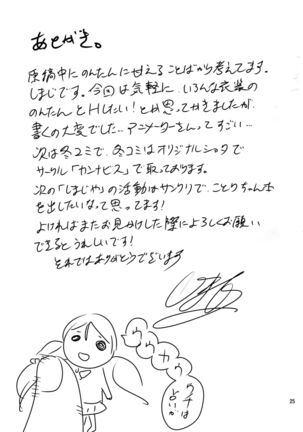 あとがき。
原稿中にのんたんに甘えることばかり考えてます。
しまじです。今回は気軽に、いろんな衣装の
のんたんとHしたい!とか思ってかきましたが
書くの大変でした…アニメーターさんってすごい…
次は冬コミで、冬コミはオリジナルショタで
サークル「カンナビス」で取っております。
次の「しまじや」の活動はサンクリで、ことりちゃん本
を出したいなって思ってます!
よければまたお見かけした際によろしくお願い
できるとうれしいです!
それではありがとうございます
25